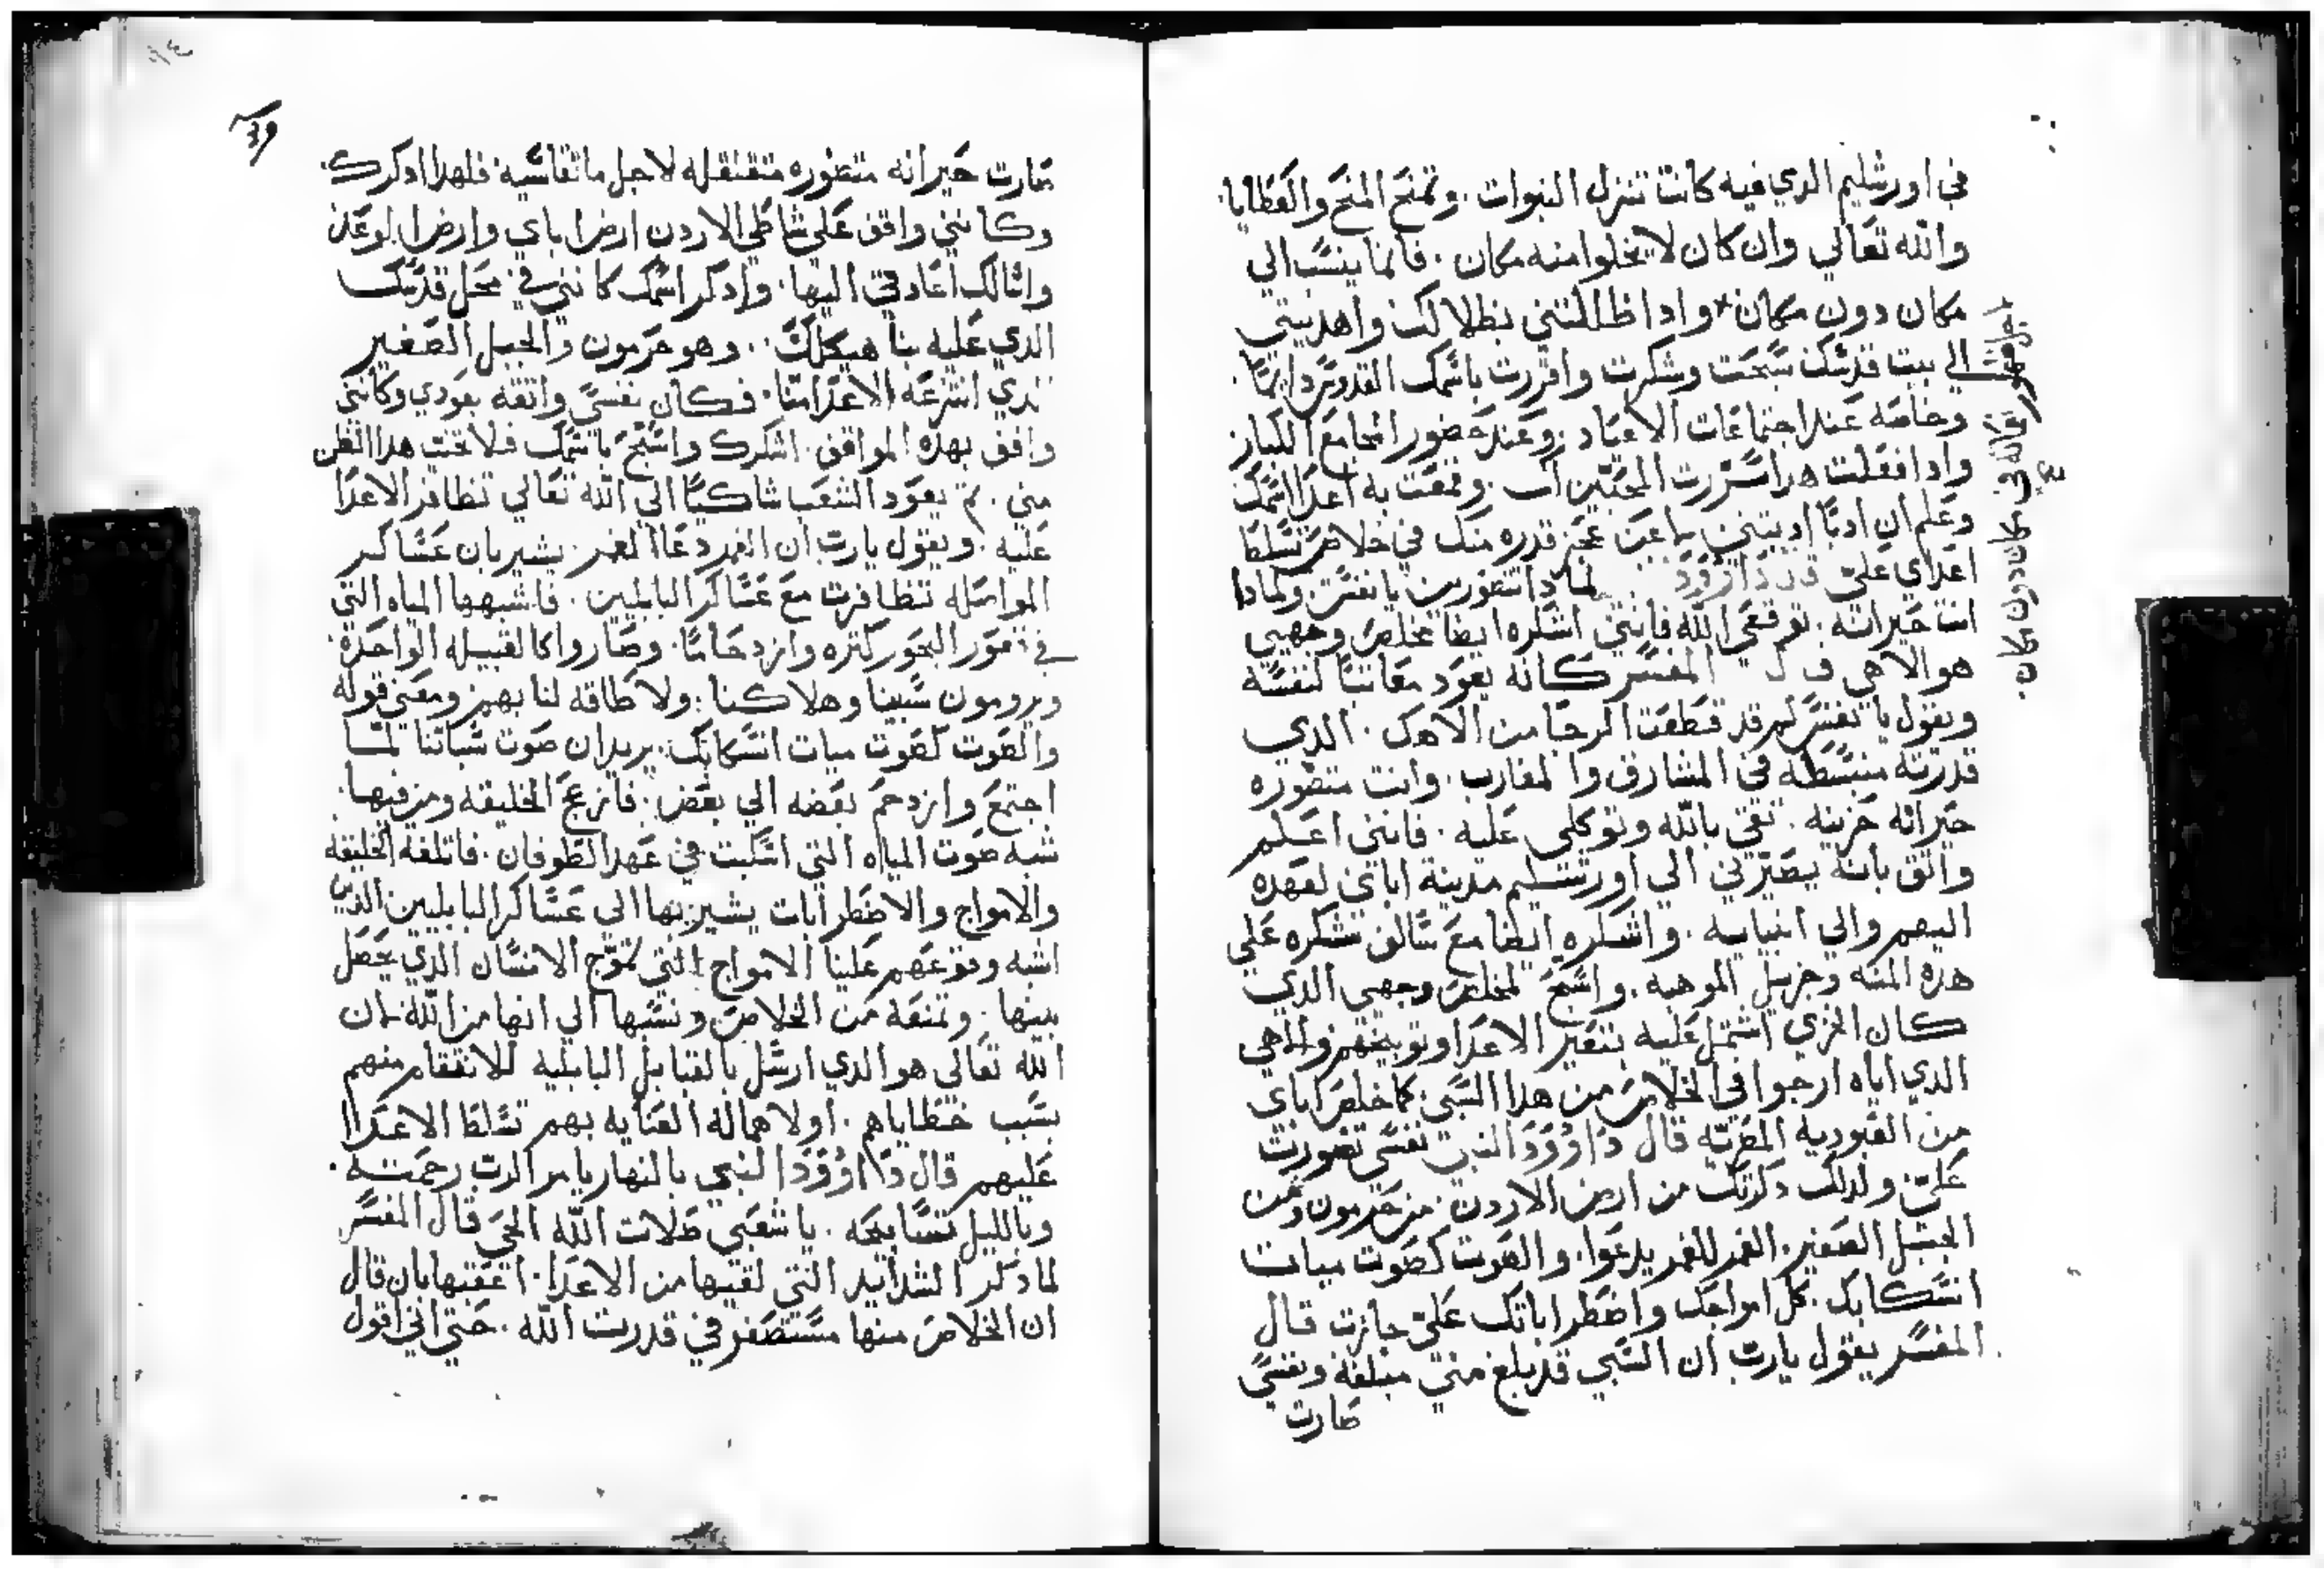 في اورشليم الدي فيه كانت تنزل النبوات . وتمنح المنح والعطايا .
والله تعالي وان كان لا يخلوا منه مكان . فانما ينسب الي
مكان دون مكان * وادا ظللتني بظلالك واهديتني
الي بيت قدسك سبحت وشكرت واقررت باسمك القدوس دايما .
وخاصه عند اجتماعات الاعياد . وعند حضور المجامع الكبار
وادا فعلت هدا سررت المحبين لك . وقمعت به اعدا اسمك
وعلم ان ادبا ادبتني لا عن عجز قدره منك في خلاص تسلط
اعداي علي قال داوود لمادا تتضورين يا نفس ولمادا
انت حيرانه . توقعي الله فانني اشكره ايضا مخلص وجهي
هو الاهي قال المفسر كانه يعود معاتبا لنفسه
ويقول يا نفس لم قد قطعت الرجا من الاهك . الدي
قدرته منبسطه في المشارق والمغارب . وانت متضوره
حيرانه حزينه . تقي بالله وتوكلي عليه . فانني اعلم
واثق بانه يصيرني الي اورشليم مدينة اباي لعهده
اليهم والي انبيايه . واشكره ايضا مع سالف شكره علي
هده المنه وجزيل الموهبه . واسبح لمخلص وجهي الدي
كان الخزي اشتمل عليه بتعير الاعدا وتوبيخهم والاهي
الدي اياه ارجوا في الخلاص من هدا السبي كما خلص اباي
من العبوديه المصريه قال داوود النبي نفسي تضورت
علي ولدلك دكرتك من ارض الاردن . من حرمون ومن
الجبل الصغير . الغمر للغمر يدعوا . والصوت كصوت ميات
انسكابك . كل امواجك واضطراباتك علي جازت قال
المفسر يقول يارب ان السبي قد بلغ مني مبلغه ونفسي
صارت
قوله تعالي في مكان دون مكان .
صارت حيرانه متضوره متقلقله لاجل ما تقاسيه فلهدا ادكرك .
وكانني واقف علي شاطي الاردن ارض اباي وارض الوعد
واسالك اعادتي اليها . وادكر اسمك كانني في محل قدسك
الدي عليه بنا هيكلك . وهو حرمون والجبل الصغير
الدي انتزعه الاعدا منا . فكان نفسي واثقه بعودي وكانني
واقف بهده المواقف . اشكرك واسبح باسمك فلا تخت هدا الظن
مني . ثم يعود الشعب شاكيا الي الله تعالي تظافر الاعدا
عليه . ويقول يارب ان الغمر دعا الغمر . يشير بان عساكر
المواصله تظافرت مع عساكر البابليين . فاشبهوا المياه التي
في قعور البحور كثره وازدحاما . وصاروا كالقبيله الواحده
ويرومون سبينا وهلاكنا . ولا طاقه لنا بهم ومعني قوله
والصوت كصوت ميات انسكابك . يريد ان صوت سباتنا لما
اجتمع وازدحم بعضه الي بعض . فازعج الخليقه ومن فيها .
شبه صوت المياه التي انسكبت في عهد الطوفان . فاتلفه الخليقه
والامواج والاضطرابات يشير بها الي عساكر البابليين الدين
اشبه وقوعهم علينا الامواج التي تموج الانسان الدي يحصل
بينها . وتمنعه من الخلاص ونسبها الي انها من الله لان
الله تعالي هو الدي ارسل بالقبايل البابليه للانتقام منهم
بسبب خطاياهم . اولا هماله العنايه بهم تسلط الاعدا
عليهم قال داوود النبي بالنهار يامر الرب رحمته .
وبالليل تسابيحه . يا شعبي صلات الله الحي قال المفسر
لما دكر الشدايد التي لقيها من الاعدا . اعقبها بان قال
ان الخلاص منها مستصغر في قدرت الله . حتي اني اقول